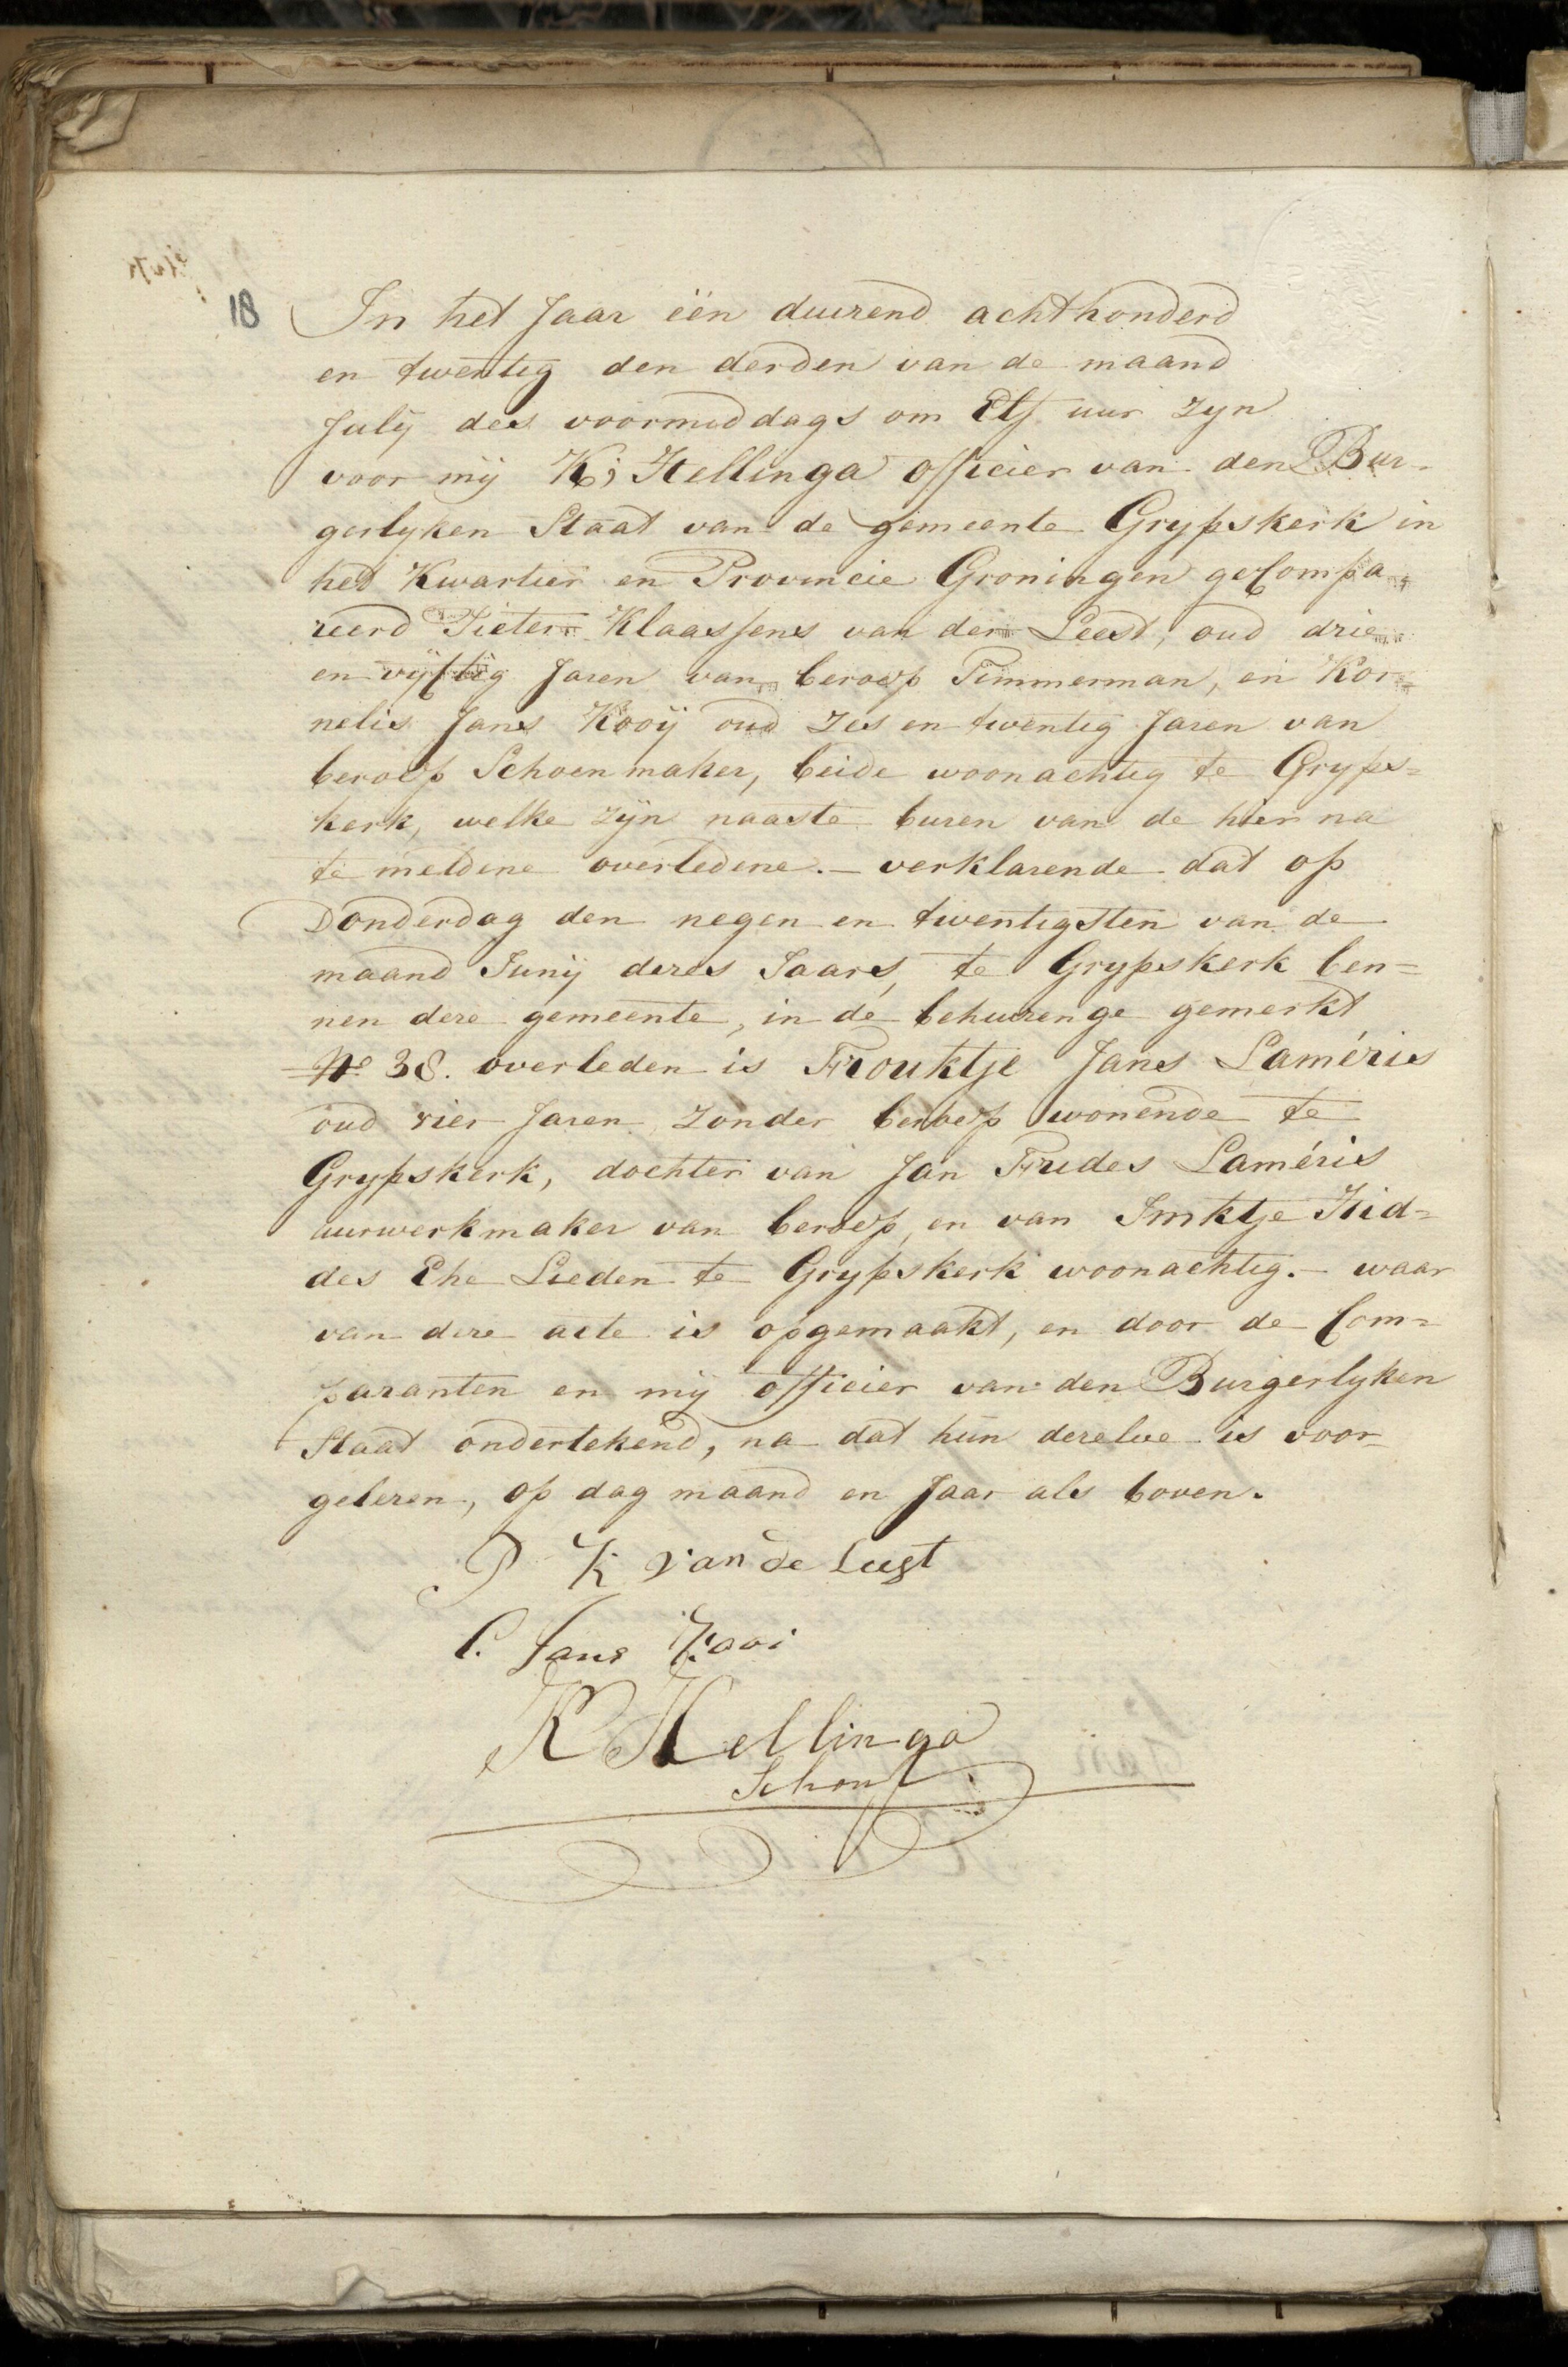 18 In het Jaar één duizend achthonderd
en twentig den derden van de maand
July des voormiddags om Elf uur zyn
voor mij K; Hellinga officier van den Bur-
gerlyken Staat van de gemeente Grypskerk in
het Kwartier en Provincie Groningen geCompa
reerd Pieter Klaassens van der Leest, oud drie
en vijftig Jaren van beroep Timmerman, en Kor=
nelis Jans Kooij oud zes en twentig Jaren van
beroep Schoenmaker, beide woonachtig te Gryps=
kerk, welke zijn naaste buren van de hier na
te meldene overledene.- verklarende dat op
Donderdag den negen en twentigsten van de
maand Junij dezes Jaars, te Grypskerk ben=
nen deze gemeente, in de behuizenge gemerkt
No 38. overleden is Frouktje Jans Laméris
oud vier Jaren zonder beroep wonende te
Grypskerk, dochter van Jan Fredes Laméris
uurwerkmaker van beroep, en van Imktje Hid=
des Ehe Lieden te Grypskerk woonachtig.- waar
van deze acte is opgemaakt, en door de Com=
paranten en mij officier van den Burgerlyken
Staat ondertekend, na dat hun dezelve is voor-
gelezen, op dag maand en Jaar als boven.
P K van de Leest
C. Jans Kooi
K Hellinga
Schout